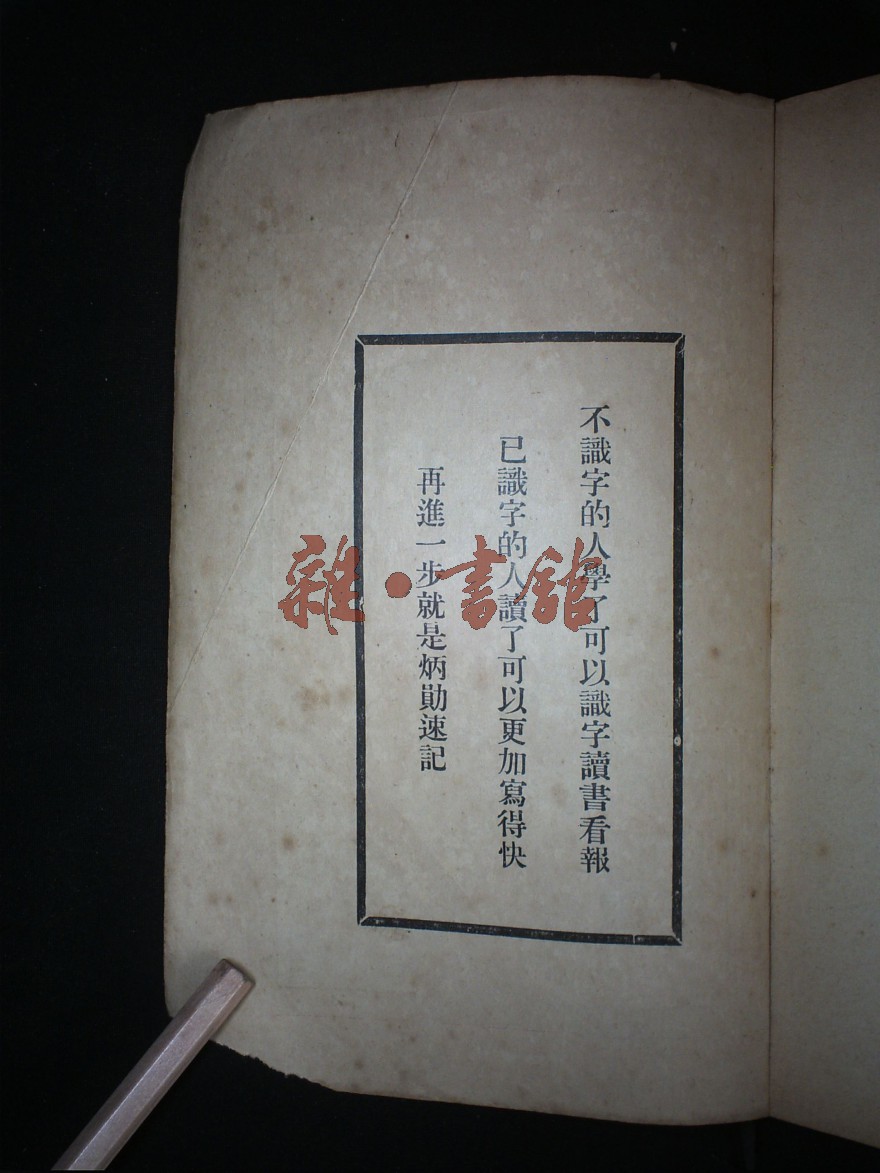 不識字的人學了可以識字讀書看報
已識字的人讀了可以更加寫得快
再進一步就是炳勛速記
雜·書館